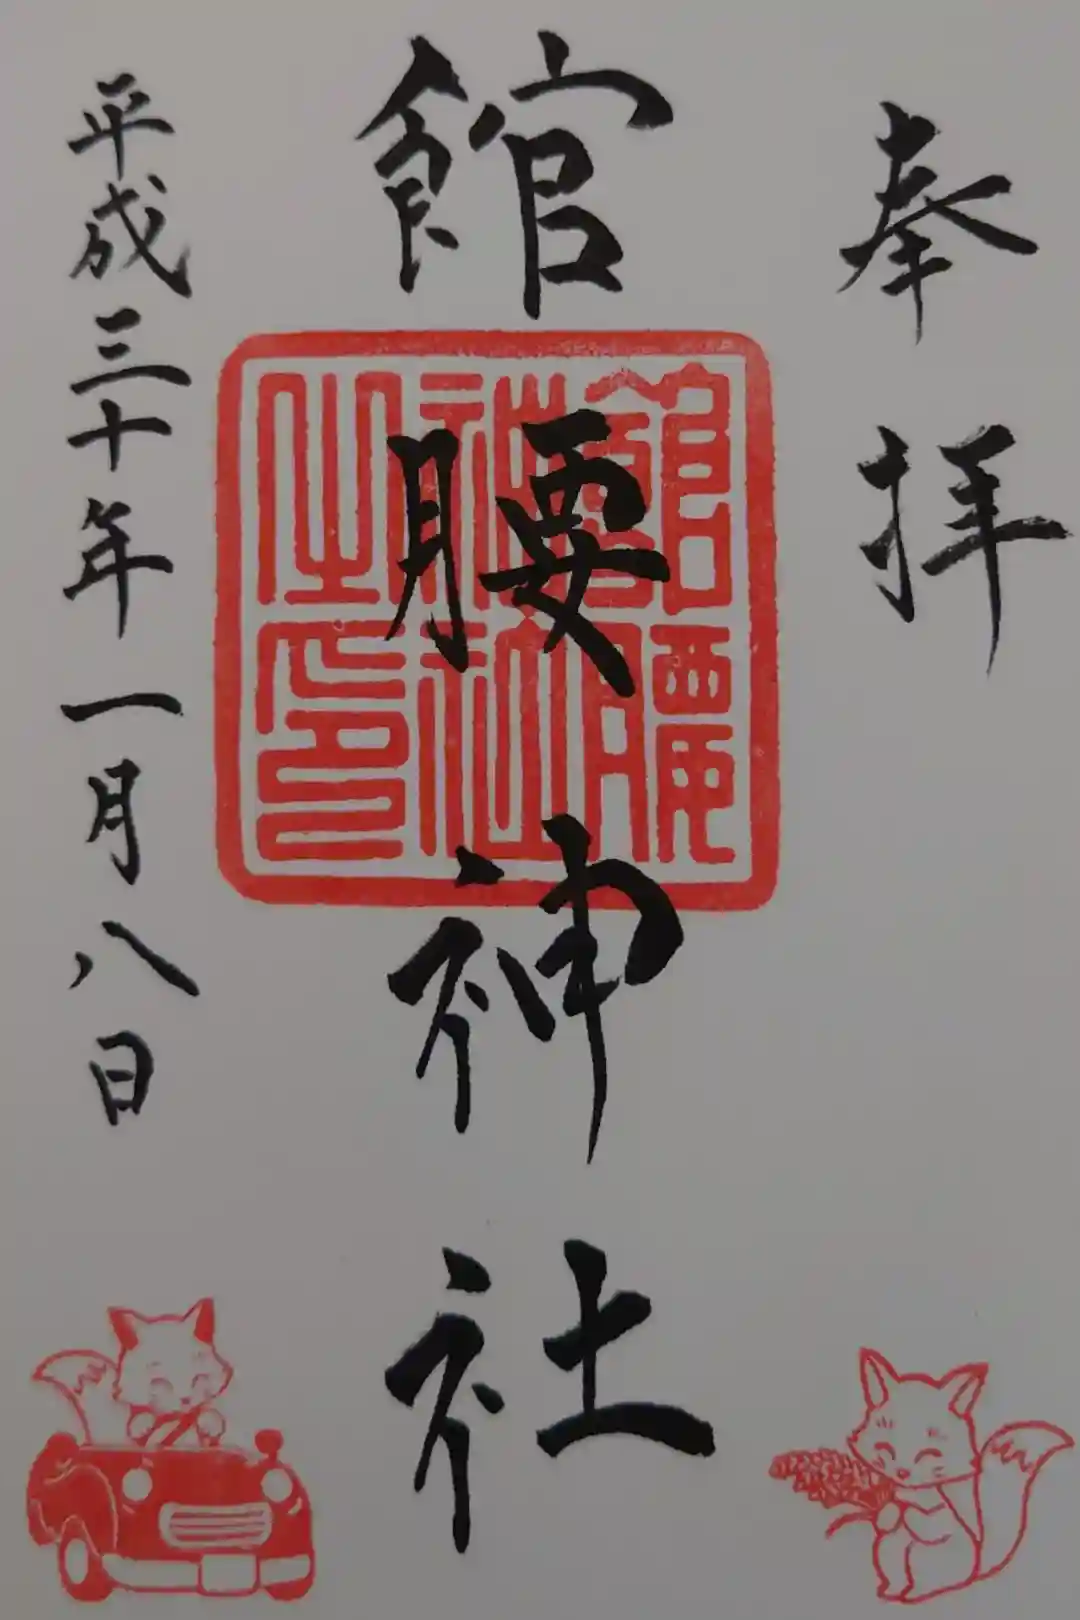 奉拝
館腰神社
館腰神社之印
平成三十年一月八日